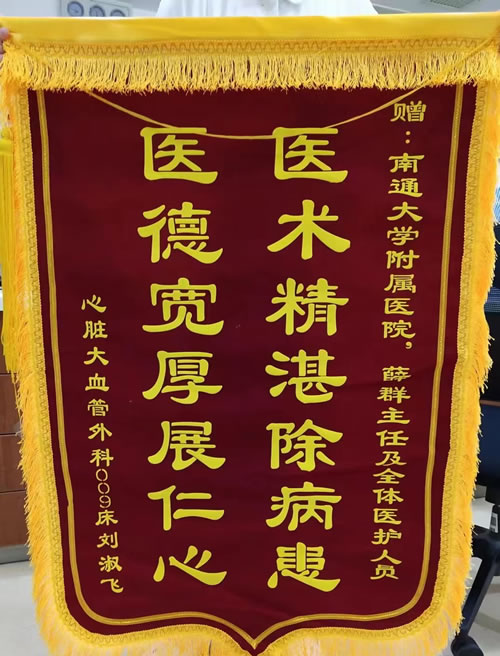 赠：南通大学附属医院，薛群主任及全体医护人员
医术精湛除病患
医德宽厚展仁心
心脏大血管外科009床刘淑飞